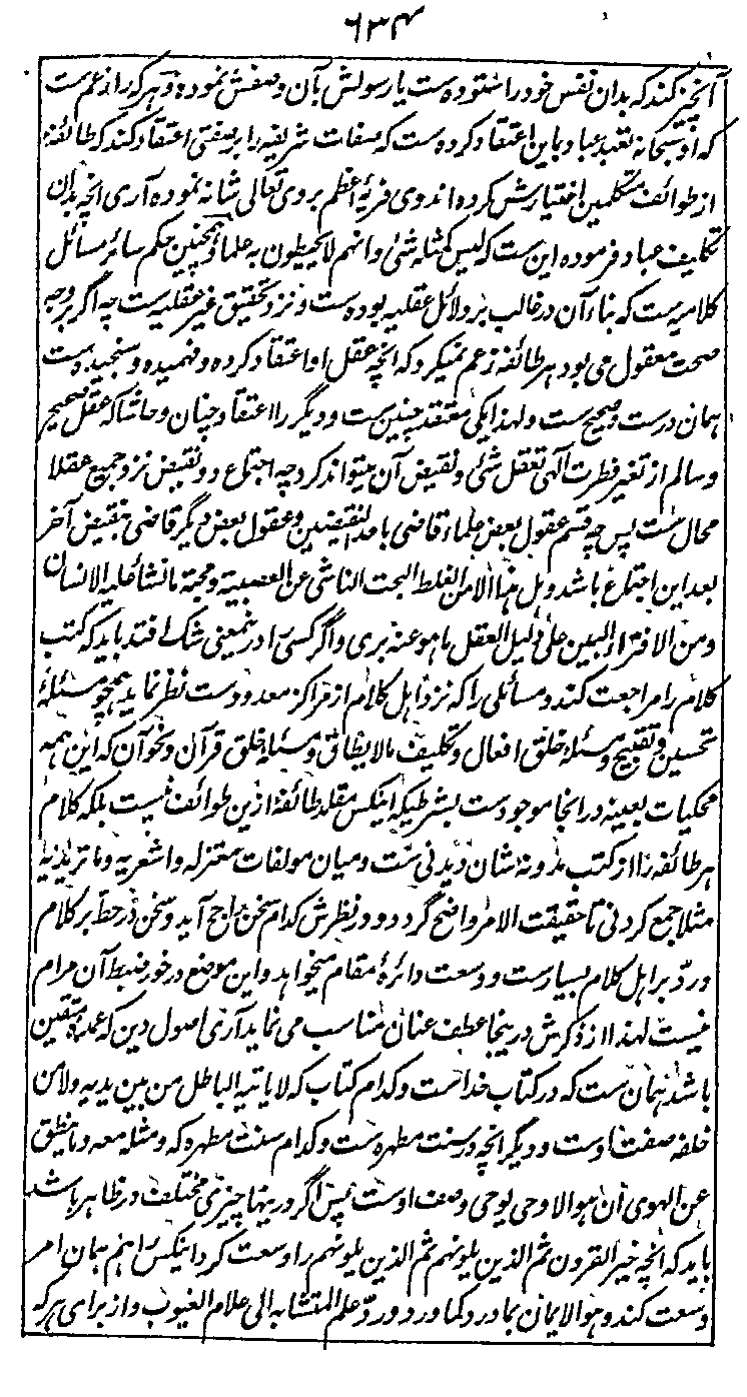 ۶۳۴
آنچیز کند که بدان نفس خود را ستوده ست یا رسولش بآن وصفش نموده و هر که را زعم ست
که او سبحانه تعبد عباد باین اعتقاد کرده ست که صفات شریفه را بر صفتی اعتقاد کند که طائفهٔ
از طوائف متکلمین اختیارش کرده اند وی فریهٔ اعظم بر وی تعالی شانه نموده آری آنچه بدان
تکلیف عباد فرموده این ست که لیس کمثله شیٔ و انهم لا یحیطون به علما و همچنین حکم سائر مسائل
کلامیه ست که بناء آن در غالب بر دلائل عقلیه بوده ست و نزد تحقیق غیر عقلیه ست چه اگر بر وجه
صحت معقول می بود هر طائفه زعم نمیکرد که آنچه عقل او اعتقاد کرده و فهمیده و سنجیده ست
همان درست و صحیح ست و لهذا یکی معتقد چنین ست و دیگر را اعتقاد چنان و حاشا که عقل صحیح
و سالم از تغیر فطرت الٓهی تعقل شیٔ و نقیض آن میتواند کرد چه اجتماع دو نقیض نزد جمیع عقلا
محال ست پس چه قسم عقول بعض علماء قاضی باحد النقیضین و عقول بعض دیگر قاضی بنقیض آخر
بعد این اجتماع باشد و بل هذا الا من الغلط البحت الناشی عن العصبیة و محبة ما نشأ علیه الانسان
و من الافتراء البین علی دلیل العقل ما هو عنه بری و اگر کسی را درینمعنی شک افتد باید که کتب
کلام را مراجعت کند و مسائلی را که نزد اهل کلام از مراکز معدود ست نظر نماید همچو مسئلهٔ
تحسین و تقبیح و مسئلهٔ خلق افعال و تکلیف ما لا یطاق و مسئلهٔ خلق قرآن و نحو آن که این همه
محکیات بعینه در انجا موجود ست بشرطیکه اینکس مقلد طائفهٔ ازین طوائف نیست بلکه کلام
هر طائفه را از کتب مدونهٔ شان دیدنی ست و میان مولفات معتزله و اشعریه و ماتریدیه
مثلا جمع کردنی تا حقیقت الامر واضح گردد و در نظرش کدام سخن راجح آید و سخن در حط بر کلام
و ردّ بر اهل کلام بسیار ست و وسعت دائرهٔ مقام میخواهد و این موضع درخور ضبط آن مرام
نیست لهذا از ذکرش درینجا عطف عنان مناسب می نماید آری اصول دین که عمدهٔ متقین
باشد همان ست که در کتاب خداست و کدام کتاب که لا یاتیه الباطل من بین یدیه و لا من
خلفه صفت اوست و دیگر آنچه در سنت مطهره ست و کدام سنت مطهره که و مثله معه و ما ینطق
عن الهوی ان هو الا وحی یوحی وصف اوست پس اگر درینها چیزی مختلف در ظاهر باشد
باید که آنچه خیر القرون ثم الذین یلونهم ثم الذین یلونهم را وسعت کرد اینکس را هم همان امر
وسعت کند و هو الایمان بما ورد کما ورد و ردّ علم المتشابه الی علام الغیوب و از برای هر که